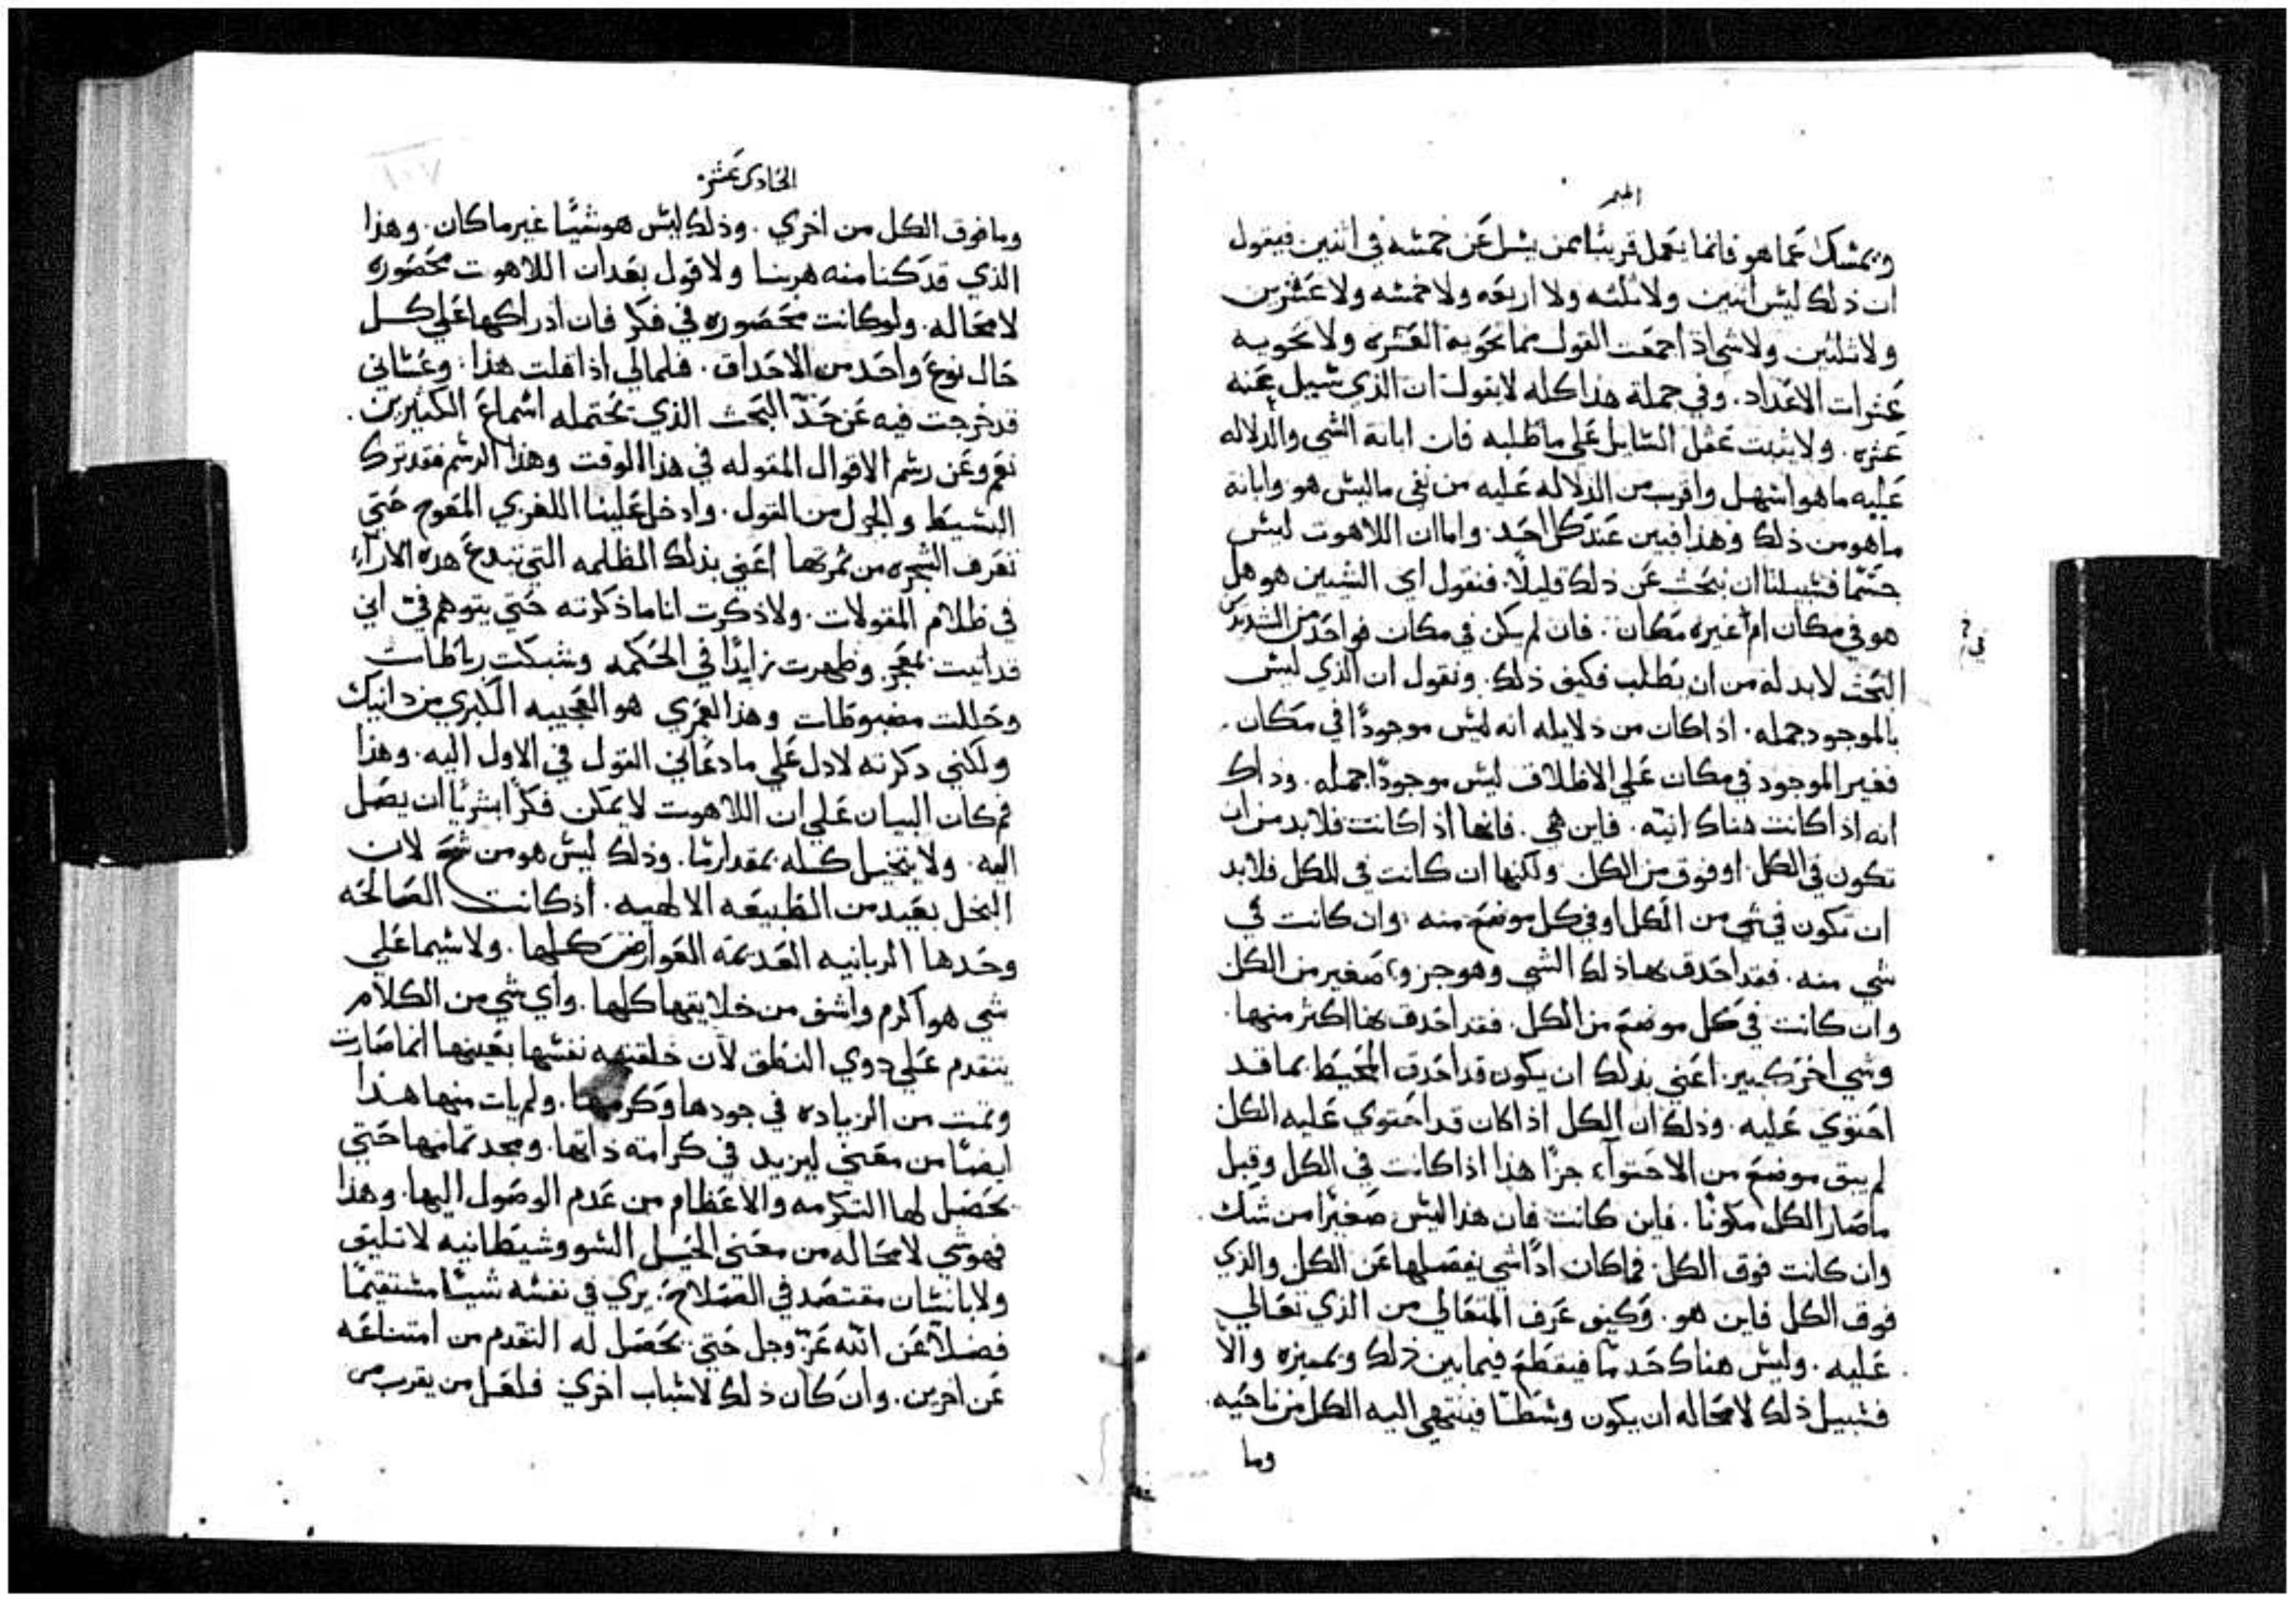 الميمر
ويمسك عما هو فانما يعمل قريبًا ممن يسل عن خمسه في اثنين فيقول
ان ذلك ليس اثنين ولا ثلثه ولا اربعه ولا خمسه ولا عشرين
ولا ثلثين ولا شي اذ اجمعت القول مما تحويه العشره ولا تحويه
عشرات الاعداد. وفي جملة هذا كله لا يقول ان الذي سيل عنه
عشره. ولا يثبت عقل السايل علي ما طلبه فان ابانة الشي والدلاله
عليه ما هو اسهل واقرب من الدلاله عليه من نفي ما ليس هو وابانة
ما هو من ذلك وهذا فبين عند كل احد. واما ان اللاهوت ليس
جسمًا فسبيلنا ان نبحث عن ذلك قليلًا. فنقول اي الشيين هو هل
هو في مكان ام غيره مكان. فان لم يكن في مكان فواحد من الشديدين
في
البحث لابد له من ان يطلب فكيف ذلك. ونقول ان الذي ليس
بالموجود جمله. اذا كان من دلايله انه ليس موجودًا في مكان.
فغير الموجود في مكان علي الاطلاق ليس موجودًا جمله. وذاك
انه اذا كانت هناك انيته. فاين هي. فانها اذا كانت فلابد من ان
تكون في الكل. او فوق من الكل ولكنها ان كانت في الكل فلابد
ان تكون في شي من الكل او في كل موضع منه. وان كانت في
شي منه. فقد احدق بها ذلك الشي وهو جزو صغير من الكل
وان كانت في كل موضع من الكل. فقد احدق بها اكثر منها.
وشي اخر كبير. اعني بذلك ان يكون قد احدق المحيط بما قد
احتوي عليه. وذلك ان الكل اذا كان قد احتوي عليه الكل
لم يبق موضع من الاحتوآء جزًا هذا اذا كانت في الكل وقبل
ما صار الكل مكونًا. فاين كانت فان هذا ليس صغيرًا من شك.
وان كانت فوق الكل. فما كان اذًا شي يفصلها عن الكل والذي
فوق الكل فاين هو. وكيف عرف المتعالي من الذي تعالي
عليه. وليس هناك حد ما فيقطع فيما بين ذلك ويميزه والا
فسبيل ذلك لا محاله ان يكون وسطًا فينتهي اليه الكل من ناحيه.
وما
الحادي عشره
وما فوق الكل من اخري. وذلك ليس هو شيًا غير مكان. وهذا
الذي قد كنا منه هربنا ولا قول بعد ان اللاهوت محصوره
لا محاله. ولو كانت محصوره في فكر فان ادراكها علي كل
حال نوع واحد من الاحداق. فلمالي اذا قلت هذا. وعساني
قد خرجت فيه عن حد البحث الذي تحتمله اسماع الكثيرين.
نعم وعن رسم الاقوال المقوله في هذا الوقت وهذا الرسم فقد ترك
البسيط والجزل من القول. وادخل علينا اللغزي المعوج حتي
تعرف الشجره من ثمرتها اعني بذلك المظلمه التي تبدع هده الارآء
في ظلام المقولات. ولا ذكرت انا ما ذكرته حتي يتوهم في اني
قد اتيت بمعجز وظهرت زايدًا في الحكمه وشبكت رباطات
وحللت مضبوطات وهذا لعمري هو العجيبه الكبري من دانيك
ولكني دكرته لادل علي ما دعاني القول في الاول اليه. وهذا
فكان البيان علي ان اللاهوت لا يمكن فكرًا بشريًا ان يصل
اليه. ولا يتخيل كله بمقدار ما. وذلك ليس هو من شح لان
البخل بعيد من الطبيعه الالهيه. اذ كانت الصالحه
وحدها الربانيه العديمه العوارض كلها. ولا سيما علي
شي هو اكرم واشف من خلايقها كلها. واي شي من الكلام
يتقدم علي دوي النطق لان خلقتهم نفسها بعينها انما صارت
وتمت من الزياده في جودها وكرمها. ولم يات منها هذا
ايضًا من معني ليزيد في كرامة ذاتها. ومجد تمامها حتي
تحصل لها التكرمه والاعظام من عدم الوصول اليها. وهذا
فهو شي لا محاله من معني الحيل السو وشيطانيه لا تليق
ولا بانسان مقتصد في الصلاح. يري في نفسه شيًا مستقيمًا
فضلًا عن الله عز وجل حتي يحصل له التقدم من امتناعه
عن اخرين. وان كان ذلك لاسباب اخري فلعل من يقرب من